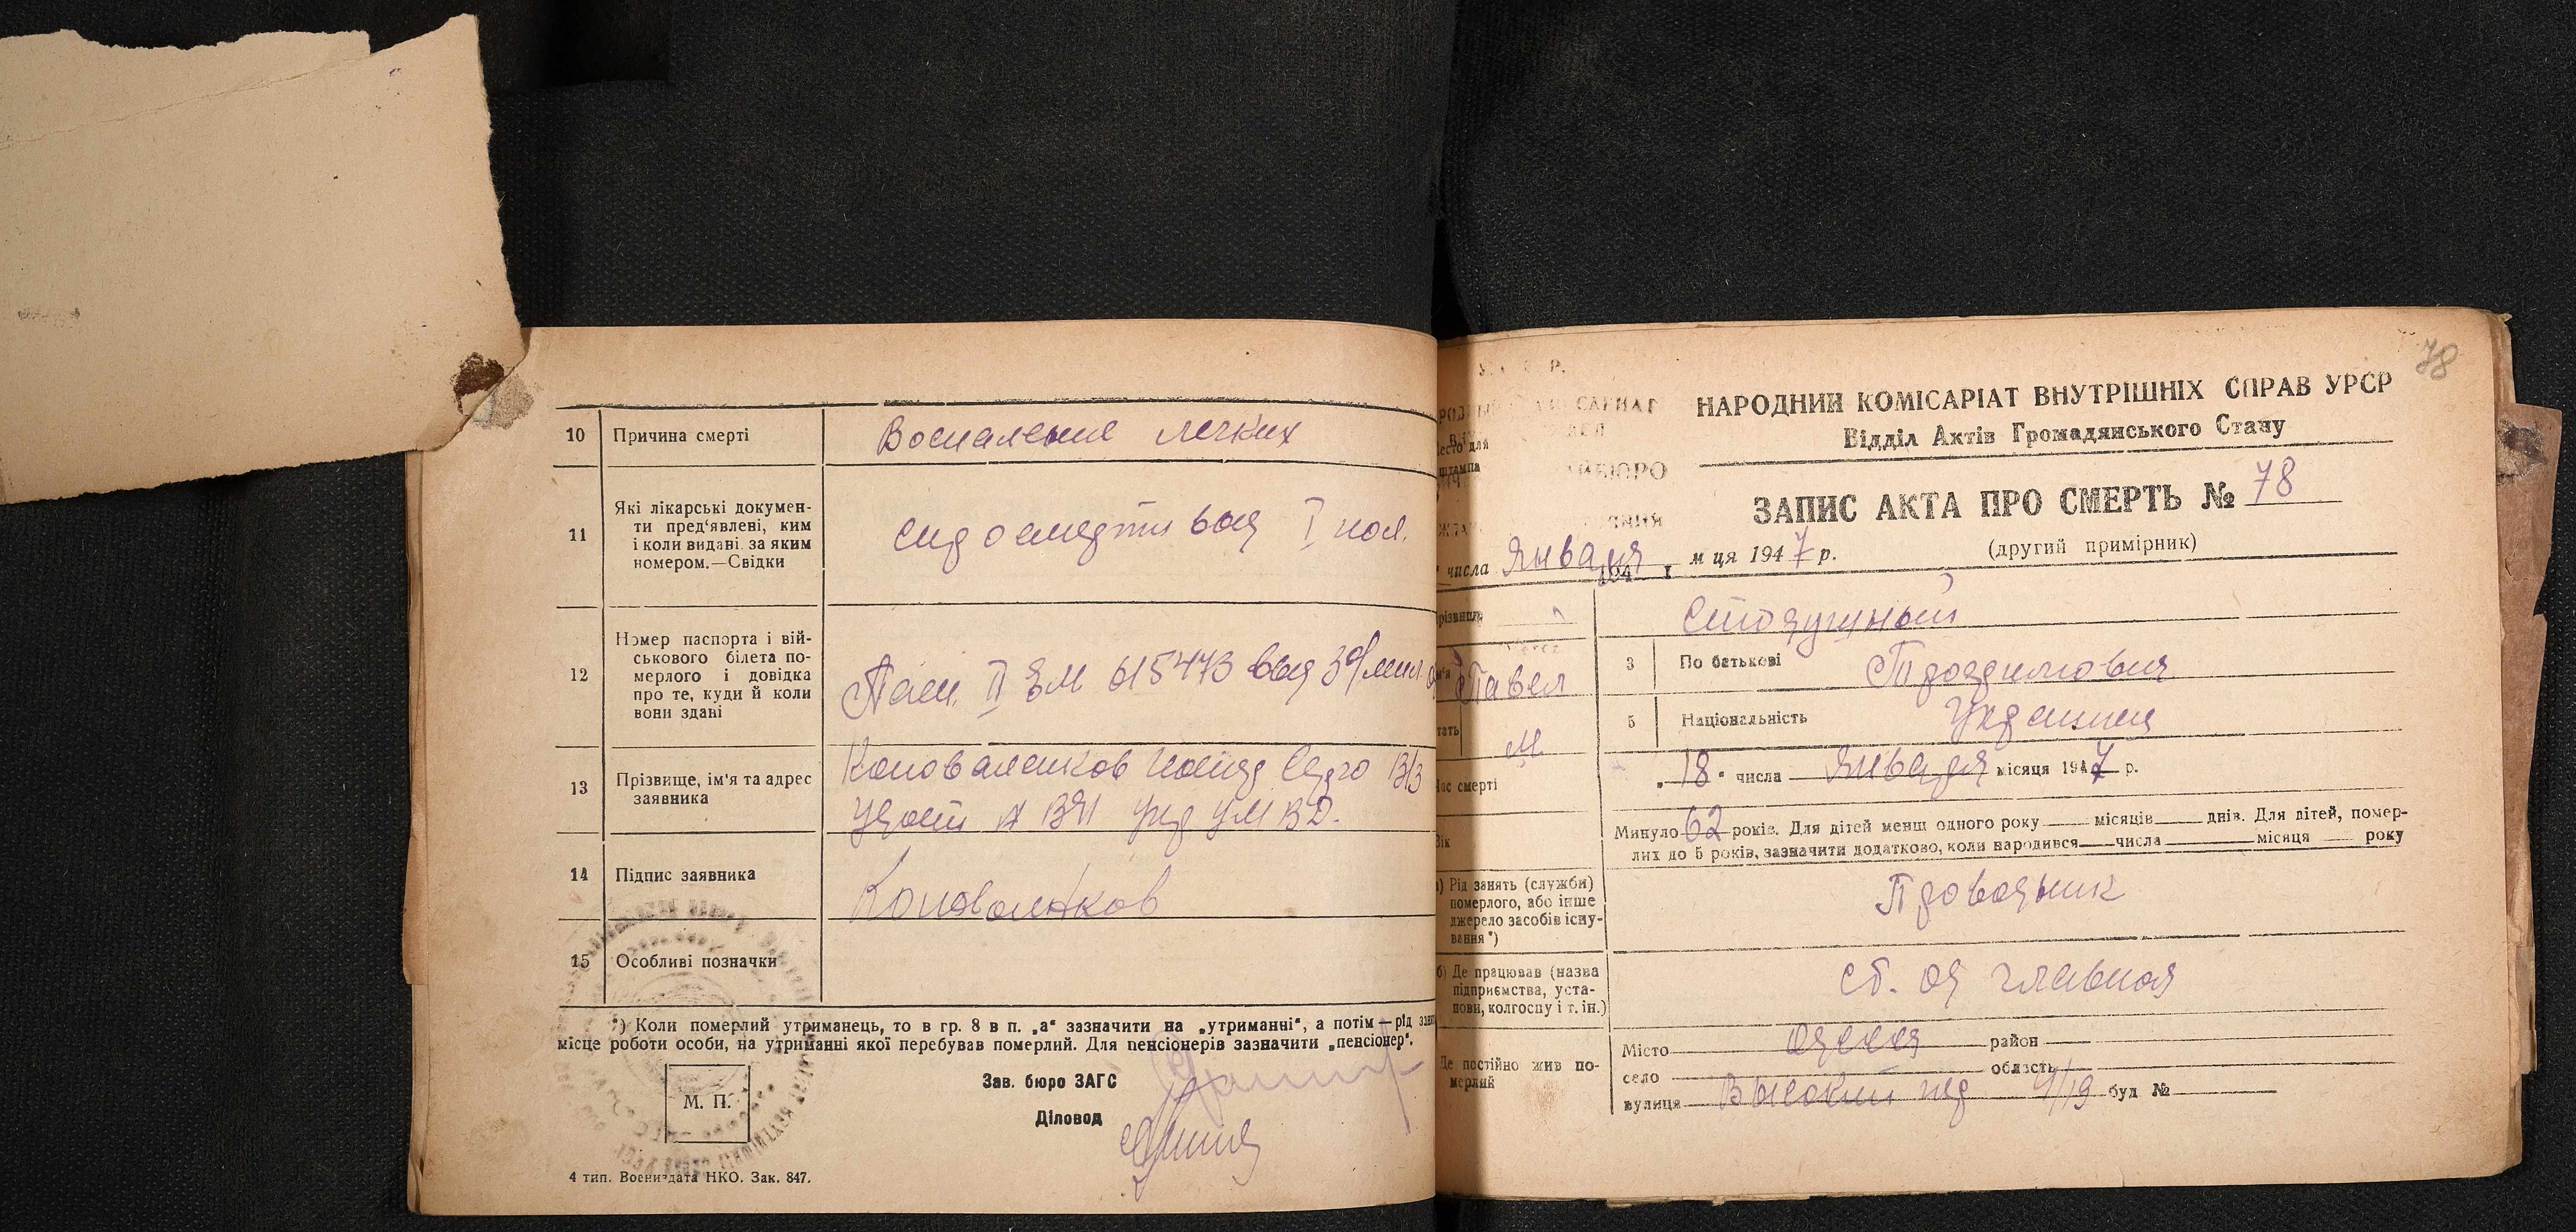 10 Причина смерті Воспаление легких
11 Які лікарські докумен-
ти пред'явлені, ким
і коли видані за яким
номером.—Свідки
выд I пол.
12 Номер паспорта і вій-
ськового білета по-
мерлого і довідка
про те, куди й коли
вони здані
II ЯМ 615473 выд 3
13 Прізвище, ім'я та адрес
заявника
Коноваленков
14 Підпис заявника Коноваленков
15 Особливі позначки
*) Коли померлий утриманець, то в гр. 8 в п. „а" зазначити на „утриманні", а потім—рід
місце роботи особи, на утриманні якої перебував померлий. Для пенсіонерів зазначити „пенсіонер".
Зав. бюро ЗАГС
Діловод
М. П.
4 тип. Воениздата НКО. Зак. 847.
78
НАРОДНИЙ КОМІСАРІАТ ВНУТРІШНІХ СПРАВ УРСР
Відділ Актів Громадянського Стану
ЗАПИС АКТА ПРО СМЕРТЬ № 78
(другий примірник)
числа Января м ця 1947 р.
Павел
3 По батькові
5 Національність Украинец
м
„18" числа Января місяця 1947 р.
Минуло 62 років. Для дітей менш одного року місяців днів. Для дітей, помер-
лих до 5 років, зазначити додатково, коли народився числа місяця року
а) Рід занять (служби)
померлого, або інше
джерело засобів існу-
вання*)
Проводник
б) Де працював (назва
підприємства, уста-
нови, колгоспу і т. ін.)
ст. од главная
Де постійно жив по-
мерлий
Місто Одесса район
село область
вулиця Высокий пер 4/19 буд №